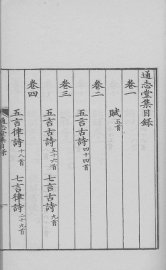 通志堂集目錄
卷一
賦五首
卷二
五言古詩四十四首
卷三
五言古詩五十六首 七言古詩九首
卷四
五言律詩十八首 七言律詩二十九首